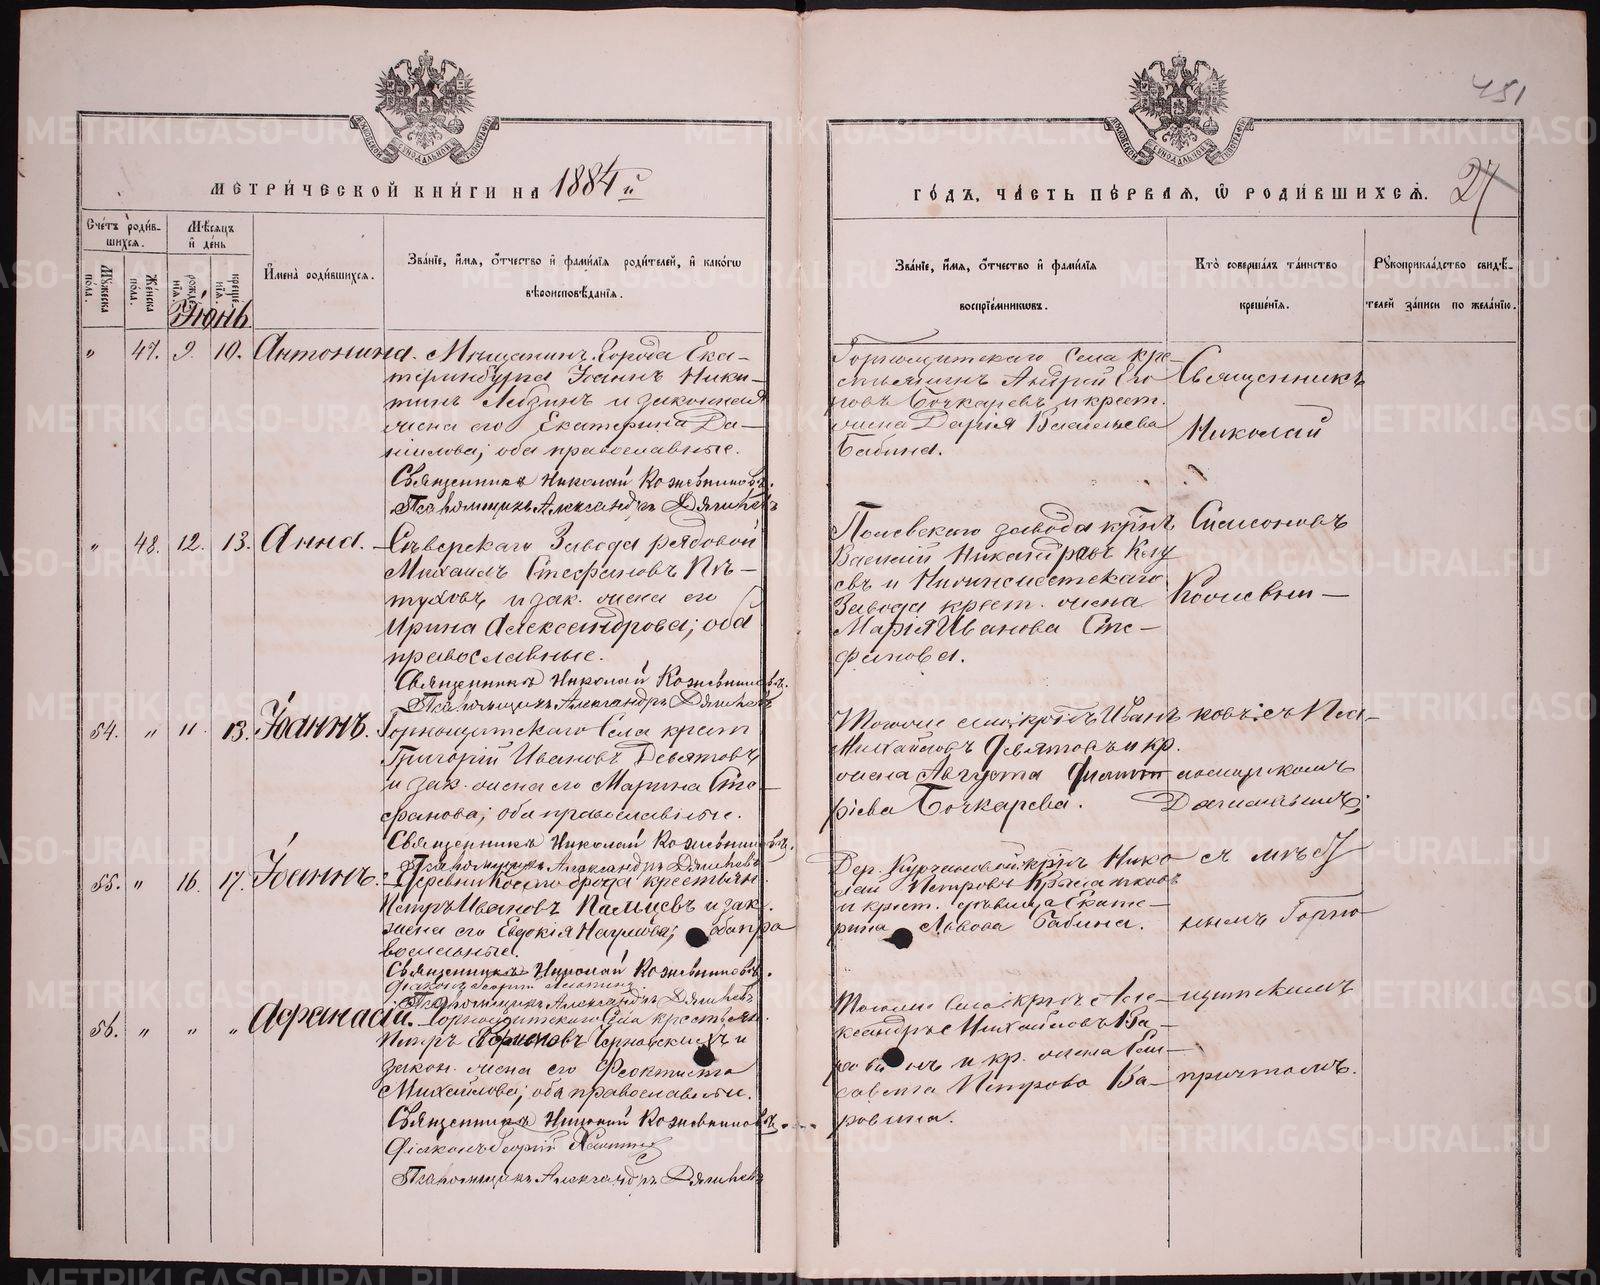 451
МЕТРИ́ЧЕСКОЙ КНИ́ГИ НА 1884 й
ГО́ДЪ, ЧА́СТЬ ПЕ́РВАЯ, Ѡ҆ РОДИ́ВШИХСѦ.
27
Счётъ роди́вшихсѧ.
Мѣ́сѧцъ и҆ де́нь
И҆мена̀ роди́вшихсѧ.
Зва́нїе, и҆́мѧ, ѻ҆́тчество и҆ фами́лїѧ роди́телей, и҆ како́гѡ
вѣроисповѣ́данїѧ.
Мꙋ́жеска по́ла.
Же́нска по́ла.
рожде́нїѧ.
креще́нїѧ.
Іюнь
Зва́нїе, и҆́мѧ, ѻ҆́тчество и҆ фами́лїѧ
воспрїе́мникѡвъ.
Кто̀ соверша́лъ та́инство
креще́нїѧ.
Рꙋкоприкла́дство свидѣ́-
телей за́писи по жела́нїю.
" 47. 9. 10. Антонина. Мѣщанинъ Города Ека-
теринбурга Іоаннъ Ники-
тинъ и законная
жена его Екатерина Да-
нилова; оба православные.
Священникъ Николай Кожевниковъ.
Псаломщикъ Александръ
Горнощитскаго Села кре-
стьянинъ Андрей Его
ровъ Бочкаревъ и крест.
жена Дарія Васильева
Бабина.
Священникъ
Николай
" 48. 12. 13. Анна. Сѣверскаго Завода рядовой
Михаилъ Стефановъ Пѣ-
туховъ и зак. жена его
Ирина Александрова; оба
православные.
Священникъ Николай Кожевниковъ.
Псаломщикъ Александръ
Полевскаго завода крѣнъ
Василій Никандровъ
евъ и Нижнеисетскаго
Завода крест. жена
Марія Иванова Сте-
фанова.
Симоновъ
Кожевни-
54. " 11. 13. Іоаннъ. Горнощитскаго Села крест
Григорій Ивановъ Девятовъ
и зак. жена его Марина Сте-
фанова; оба православные.
Священникъ Николай Кожевниковъ.
Псаломщикъ Александръ
Тогоже села крѣнъ Иванъ
Михайловъ Девятовъ и кр.
жена Августа
рiева Бочкарева.
ковъ съ Пса-
ломщикомъ
55. " 16. 17. Іоаннъ. Деревни Косого брода крестьян.
Петръ Ивановъ Пальцевъ и зак.
жена его Евдокія Наумова; оба пра
вославные.
Священникъ Николай Кожевниковъ.
Діаконъ Георгій
Псаломщикъ Александръ
Дер. Кургановой крѣнъ Нико
лай Петровъ
и крест. дѣвица Екате-
рина Львова Бабина.
съ мѣст
нымъ Горно
56. " " " Афанасій. Горнощитскаго Села крестьян.
Петръ
закон. жена его Феоктиста
Михайлова; оба православные.
Священникъ Николай Кожевниковъ
Діаконъ Георгій
Псаломщикъ Александръ
Тогоже Села крѣнъ Але-
ксандръ Михайловъ Ва-
и кр. жена Ели-
савета Петрова Ва-
ровина.
щитскимъ
причтомъ.
METRIKI.GASO-URAL.RU